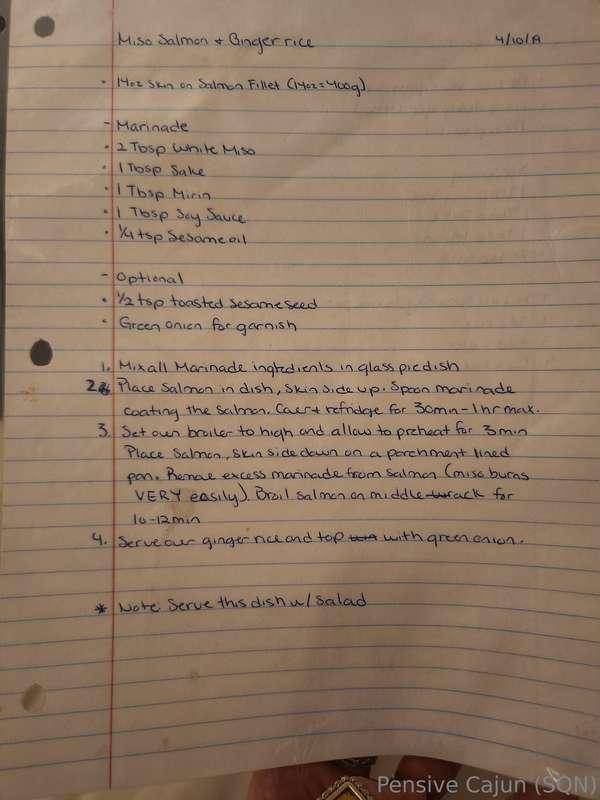 Miso Salmon + Ginger rice 4/10/A
• 14oz Skin on Salmon Fillet (14oz=400g)
- Marinade
• 2 Tbsp White Miso
• 1 Tbsp Sake
• 1 Tbsp Mirin
• 1 Tbsp Soy Sauce
• 1/4 tsp Sesame oil
- Optional
• 1/2 tsp toasted sesame seed
• Green onion for garnish
1. Mix all Marinade ingredients in glass pie dish
2. Place Salmon in dish, skin side up. Spoon marinade
coating the salmon. Cover + refridge for 30min-1hr max.
3. Set oven broiler to high and allow to preheat for 3min
Place Salmon, skin side down on a parchment lined
pan. Remove excess marinade from salmon (miso burns
VERY easily). Broil salmon on middle rack for
10-12min
4. Serve over ginger rice and top with green onion.
* Note: Serve this dish w/ Salad
Pensive Cajun (SON)